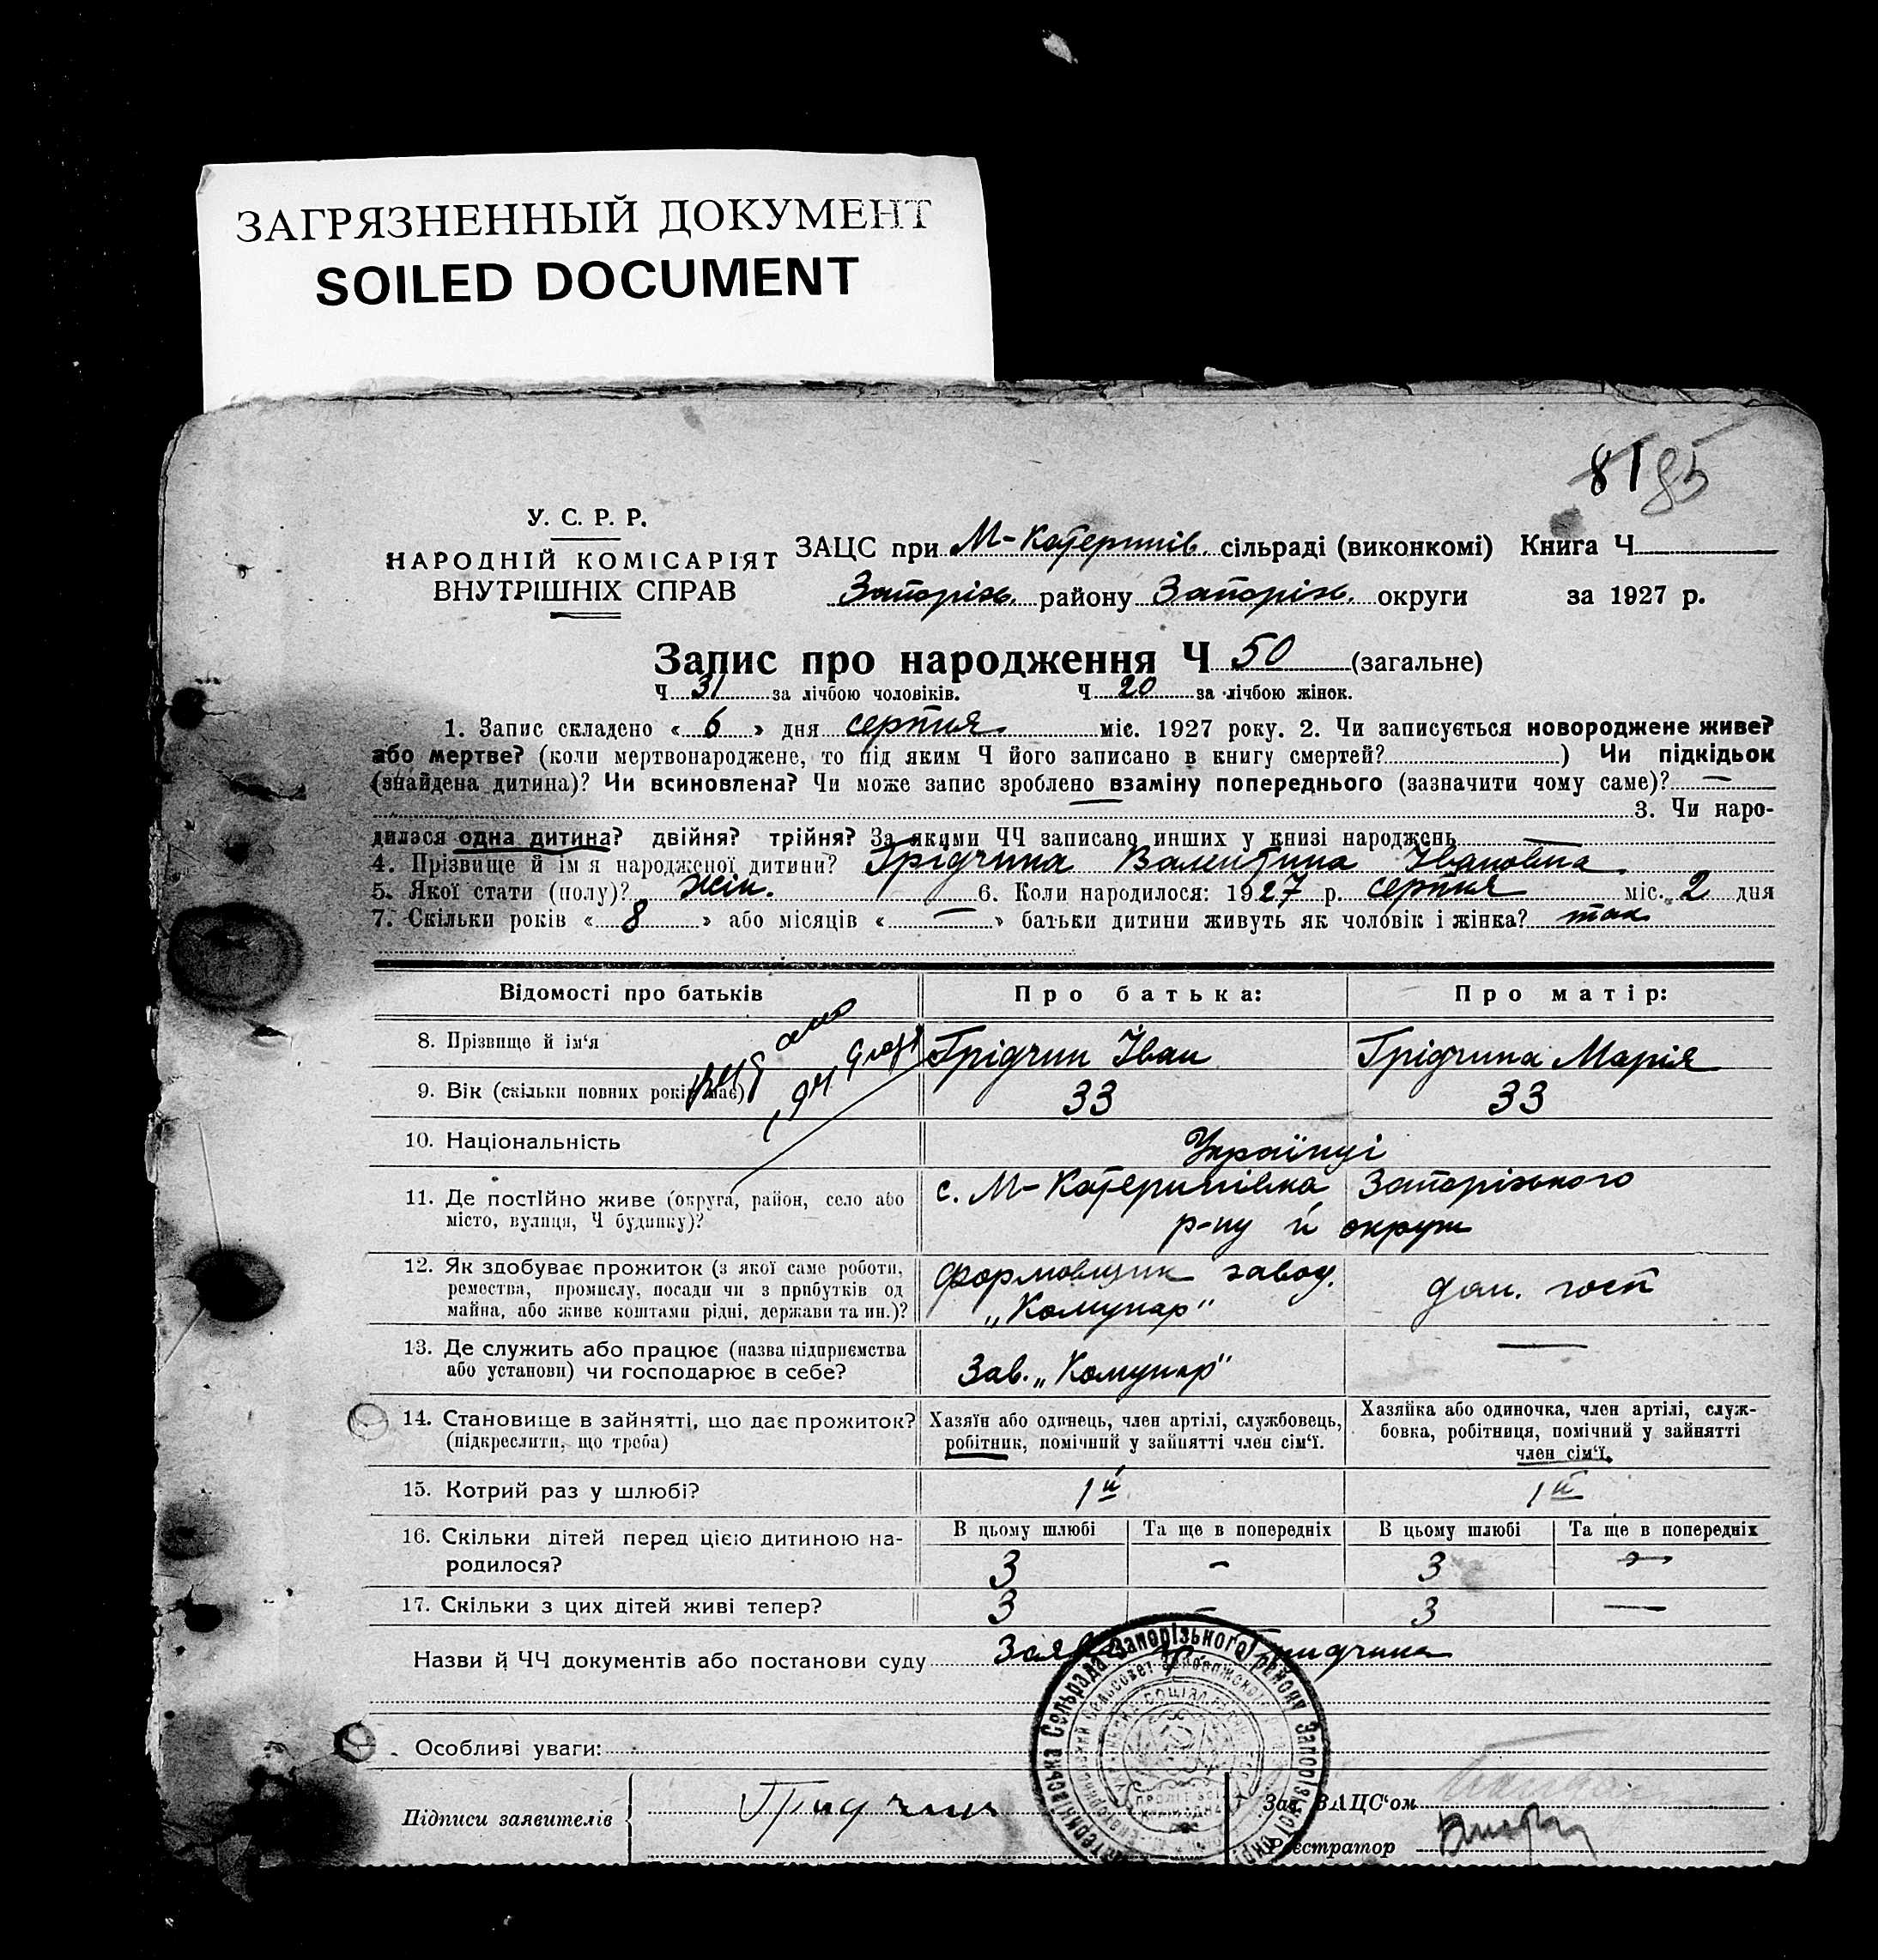 ЗАГРЯЗНЕННЫЙ ДОКУМЕНТ
SOILED DOCUMENT
81 85
У. С. Р. Р.
НАРОДНІЙ КОМІСАРІЯТ
ВНУТРІШНІХ СПРАВ
ЗАЦС при М-Катеринів. сільраді (виконкомі) Книга Ч
Запоріж. району Запоріж. округи за 1927 р.
Запис про народження Ч 50 (загальне)
Ч 31 за лічбою чоловіків. Ч 20 за лічбою жінок.
1. Запис складено « 6 » дня серпня міс. 1927 року. 2. Чи записується новороджене живе?
або мертве? (коли мертвонароджене, то під яким Ч його записано в книгу смертей? ) Чи підкідьок
(знайдена дитина)? Чи всиновлена? Чи може запис зроблено взаміну попереднього (зазначити чому саме)? —
3. Чи наро-
дилася одна дитина? двійня? трійня? За якими ЧЧ записано инших у книзі народжень —
4. Прізвище й ім'я народженої дитини? Грідчина Валентина Івановна
5. Якої стати (полу)? жін. 6. Коли народилося: 1927 р. серпня міс. 2 дня
7. Скільки років « 8 » або місяців « — » батьки дитини живуть як чоловік і жінка? так
Відомості про батьків Про батька: Про матір:
8. Прізвище й ім'я Грідчин Іван Грідчина Марія
9. Вік (скільки повних років має) 33 33
10. Національність Українці
11. Де постійно живе (округа, район, село або
місто, вулиця, Ч будинку)?
с. М-Катеринівка Запорізького
р-ну й округи
12. Як здобуває прожиток (з якої саме роботи,
ремества, промислу, посади чи з прибутків од
майна, або живе коштами рідні, держави та ин.)?
формовщик завод.
„Комунар"
дом. госп
13. Де служить або працює (назва підприємства
або установи) чи господарює в себе?
Зав. „Комунар" —
14. Становище в зайнятті, що дає прожиток?
(підкреслити, що треба)
Хазяїн або одинець, член артілі, службовець,
робітник, помічний у зайнятті член сім'ї.
Хазяйка або одиночка, член артілі, служ-
бовка, робітниця, помічний у зайнятті
член сім'ї.
15. Котрий раз у шлюбі? 1й 1й
16. Скільки дітей перед цією дитиною на-
родилося?
В цьому шлюбі Та ще в попередніх В цьому шлюбі Та ще в попередніх
3 - 3 —
17. Скільки з цих дітей живі тепер? 3 — 3 —
Назви й ЧЧ документів або постанови суду Грідчина
Особливі уваги:
Підписи заявителів Гридчин
Зав. ЗАЦС'ом
Реєстратор
Сельрада Запорізького району Запорізької